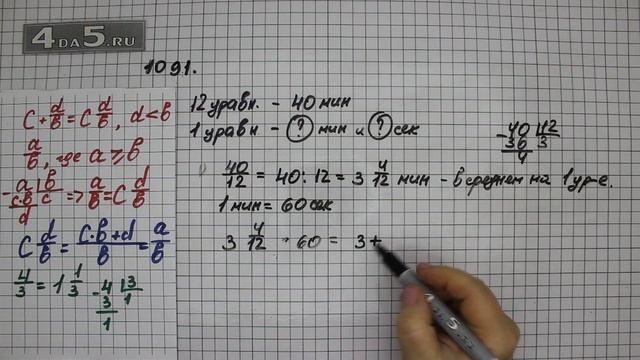 4DA5.RU
1091.
C + d/b = C d/b, d < b
a/b, где a ⩾ b
- a | b
c·b | c
d
=> a/b = C d/b
C d/b = (c·b+d)/b = a/b
4/3 = 1 1/3
- 4 | 3
3 | 1
1
12 уравн. - 40 мин
1 уравн - ? мин и ? сек
40/12 = 40 : 12 = 3 4/12 мин - в среднем на 1 ур-е.
- 40 | 12
36 | 3
4
1 мин = 60 сек
3 4/12 · 60 = 3 +